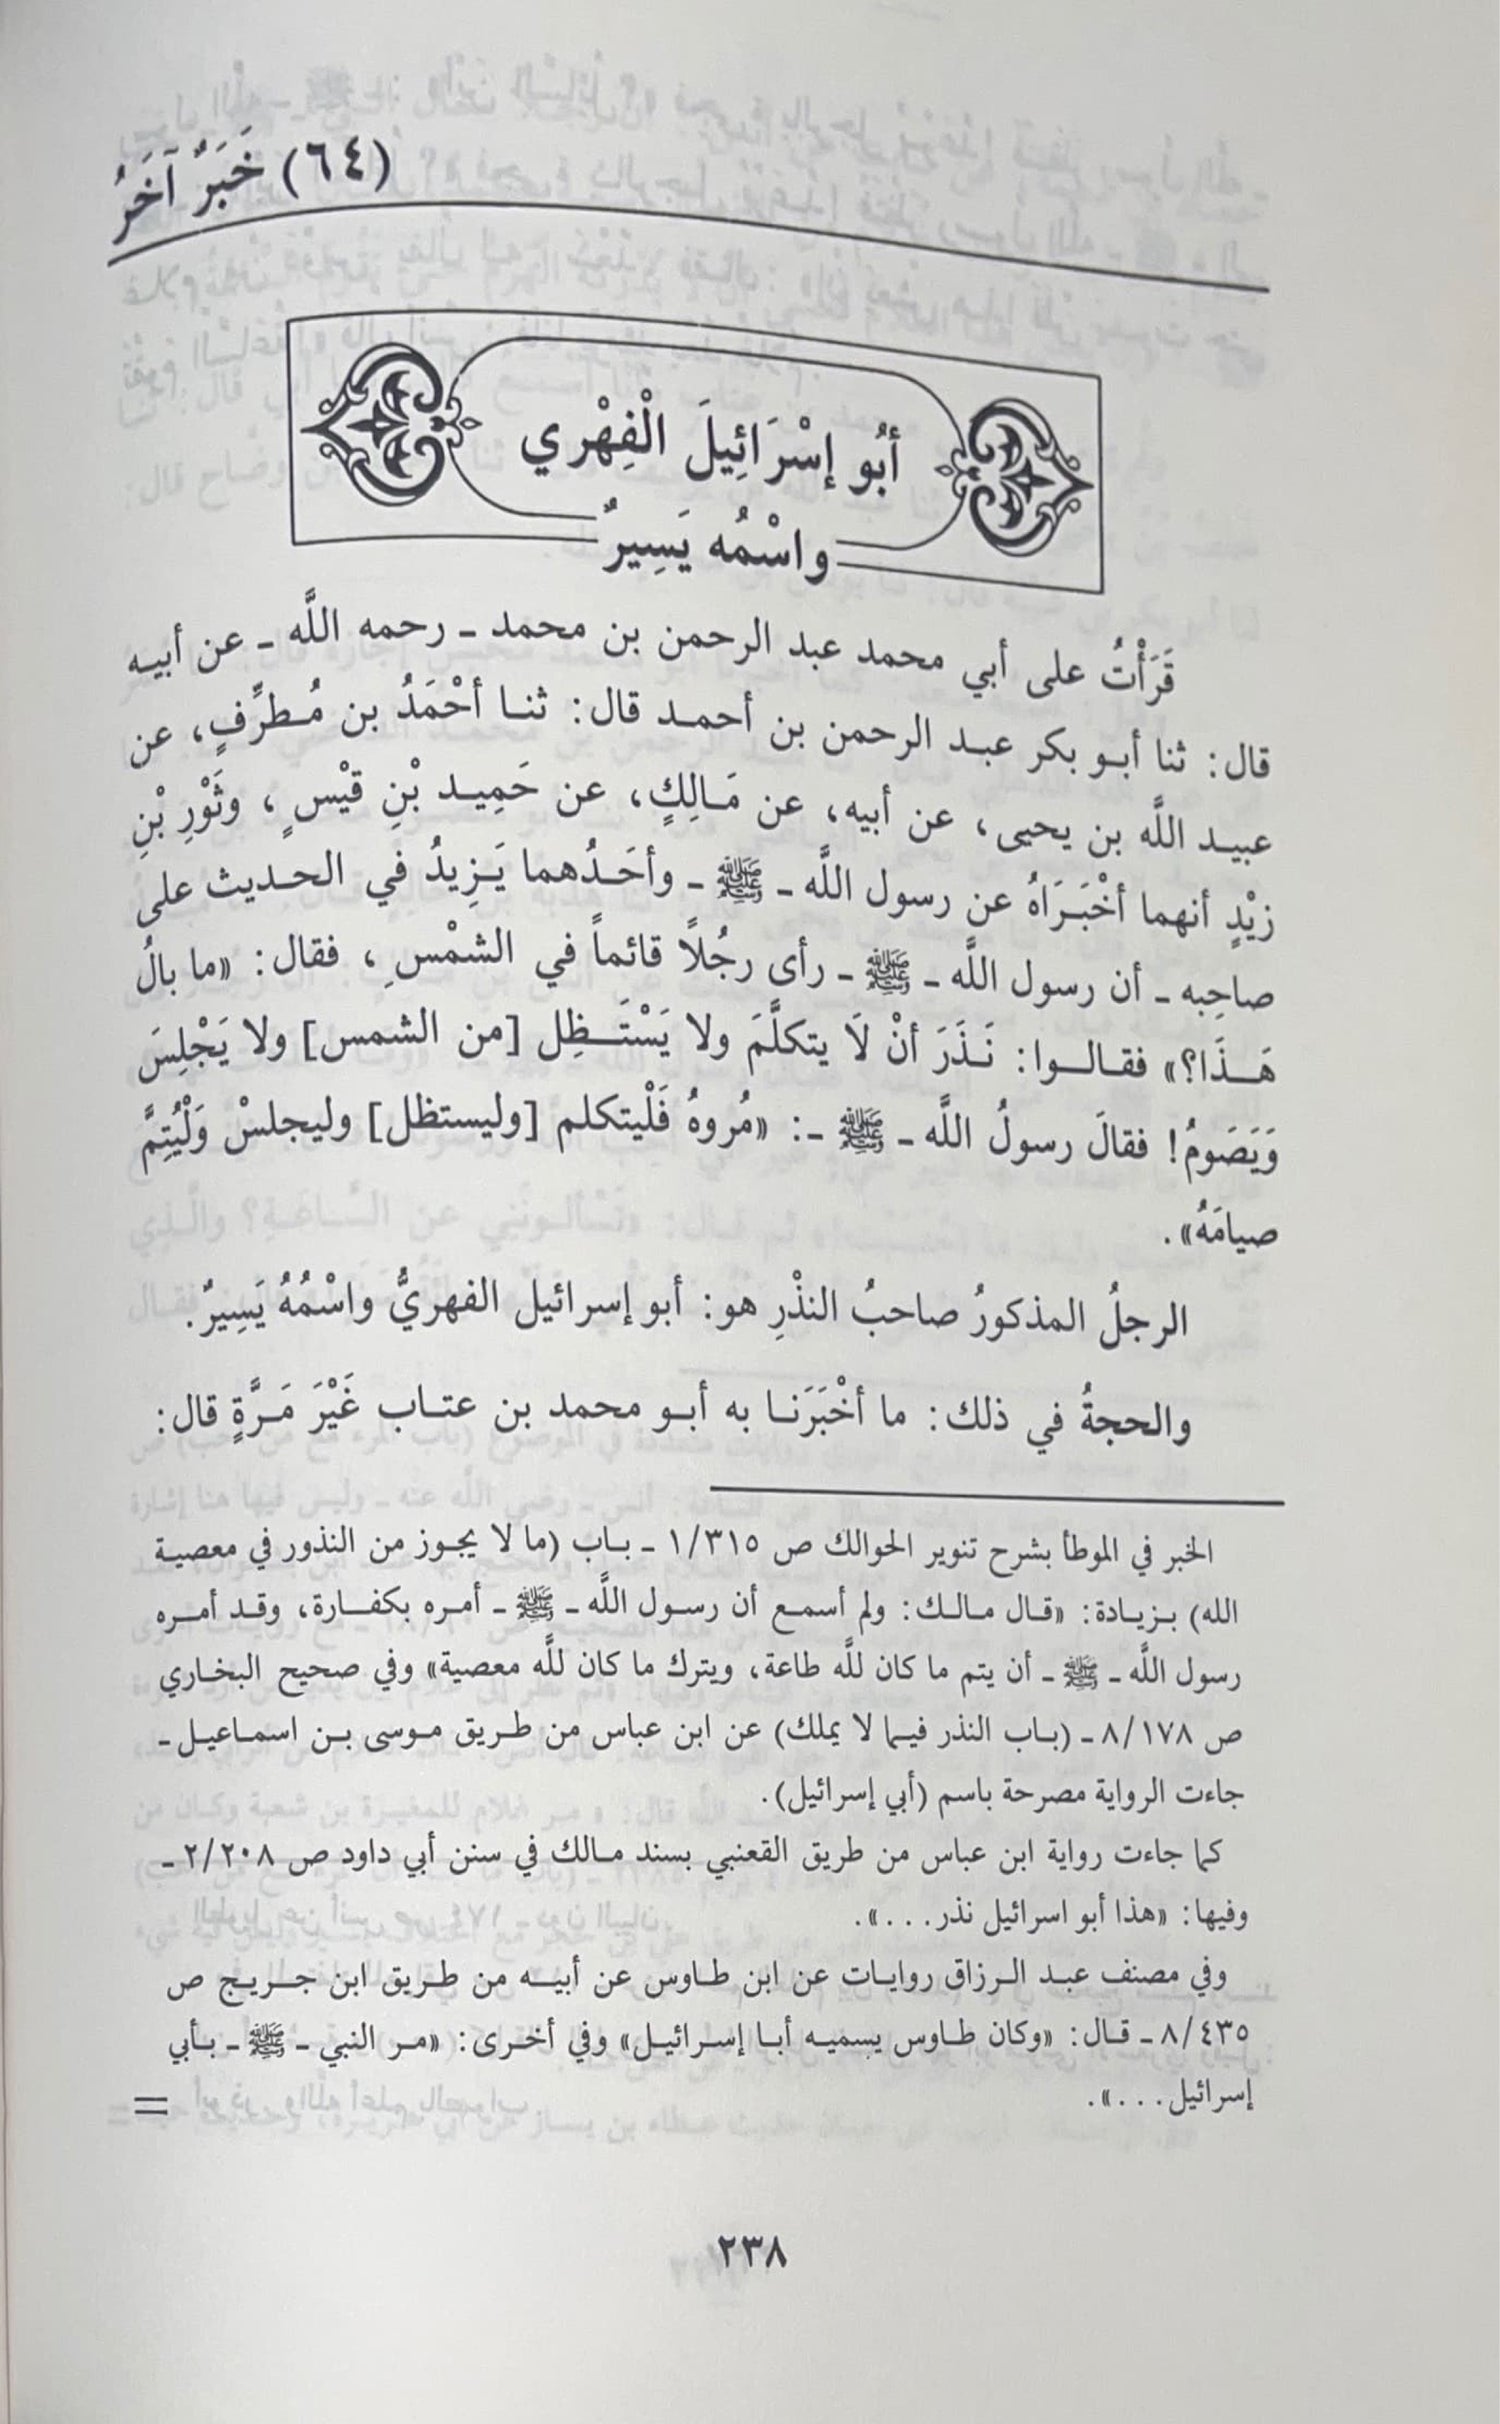 (٦٤) خَبَرٌ آخَرُ
أبُو إسْرَائِيلَ الْفِهْري
واسْمُه يَسِيرٌ
قَرَأْتُ على أبي محمد عبد الرحمن بن محمد ـ رحمه اللَّه ـ عن أبيه
قال: ثنا أبو بكر عبد الرحمن بن أحمد قال: ثنا أحْمَدُ بن مُطرِّفٍ، عن
عبيد اللَّه بن يحيى، عن أبيه، عن مَالِكٍ، عن حَمِيد بْنِ قيْسٍ، وثَوْرِ بْنِ
زيْدٍ أنهما أخْبَرَاهُ عن رسول اللَّه ـ ﷺ ـ وأحَدُهما يَزِيدُ في الحديث على
صاحِبه ـ أن رسول اللَّه ـ ﷺ ـ رأى رجُلاً قائماً في الشمْسِ، فقال: «ما بالُ
هَذَا؟» فقالوا: نَذَرَ أنْ لَا يتكلَّمَ ولا يَسْتَظِل [من الشمس] ولا يَجْلِسَ
وَيَصَومُ! فقالَ رسولُ اللَّه ـ ﷺ ـ: «مُروهُ فَلْيتكلم [وليستظل] وليجلسْ وَلْيُتِمَّ
صيامَهُ».
الرجلُ المذكورُ صاحبُ النذْرِ هو: أبو إسرائيل الفهريُّ واسْمُهُ يَسِيرٌ.
والحجةُ في ذلك: ما أخْبَرَنا به أبو محمد بن عتاب غَيْرَ مَرَّةٍ قال:
الخبر في الموطأ بشرح تنوير الحوالك ص ١/٣١٥ ـ باب (ما لا يجوز من النذور في معصية
الله) بزيادة: «قال مالك: ولم أسمع أن رسول اللَّه ـ ﷺ ـ أمره بكفارة، وقد أمره
رسول اللَّه ـ ﷺ ـ أن يتم ما كان للَّه طاعة، ويترك ما كان للَّه معصية» وفي صحيح البخاري
ص ٨/١٧٨ ـ (باب النذر فيما لا يملك) عن ابن عباس من طريق موسى بن اسماعيل ـ
جاءت الرواية مصرحة باسم (أبي إسرائيل).
كما جاءت رواية ابن عباس من طريق القعنبي بسند مالك في سنن أبي داود ص ٢/٢٠٨ ـ
وفيها: «هذا أبو اسرائيل نذر...».
وفي مصنف عبد الرزاق روايات عن ابن طاوس عن أبيه من طريق ابن جريج ص
٨/٤٣٥ ـ قال: «وكان طاوس يسميه أبا إسرائيل» وفي أخرى: «مر النبي ـ ﷺ ـ بأبي
إسرائيل...». =
٢٣٨